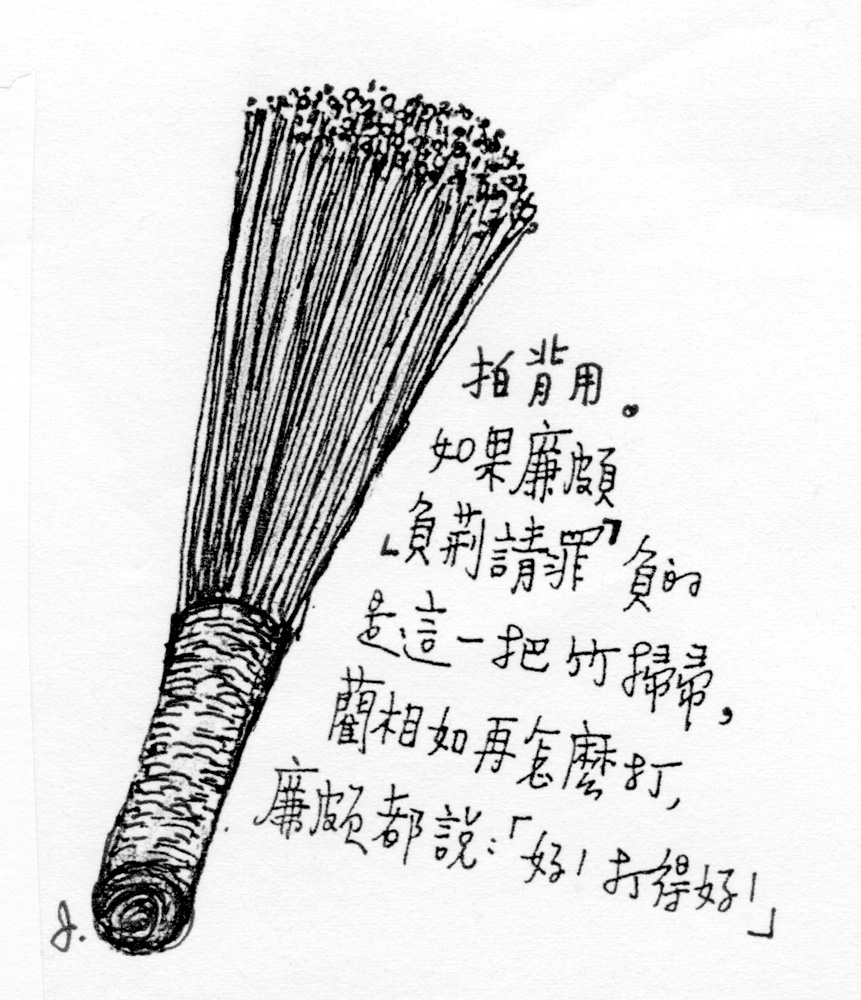 拍背用。
如果廉頗
「負荊請罪」負的
是這一把竹掃帚,
藺相如再怎麼打,
廉頗都說:「好!打得好!」
J.